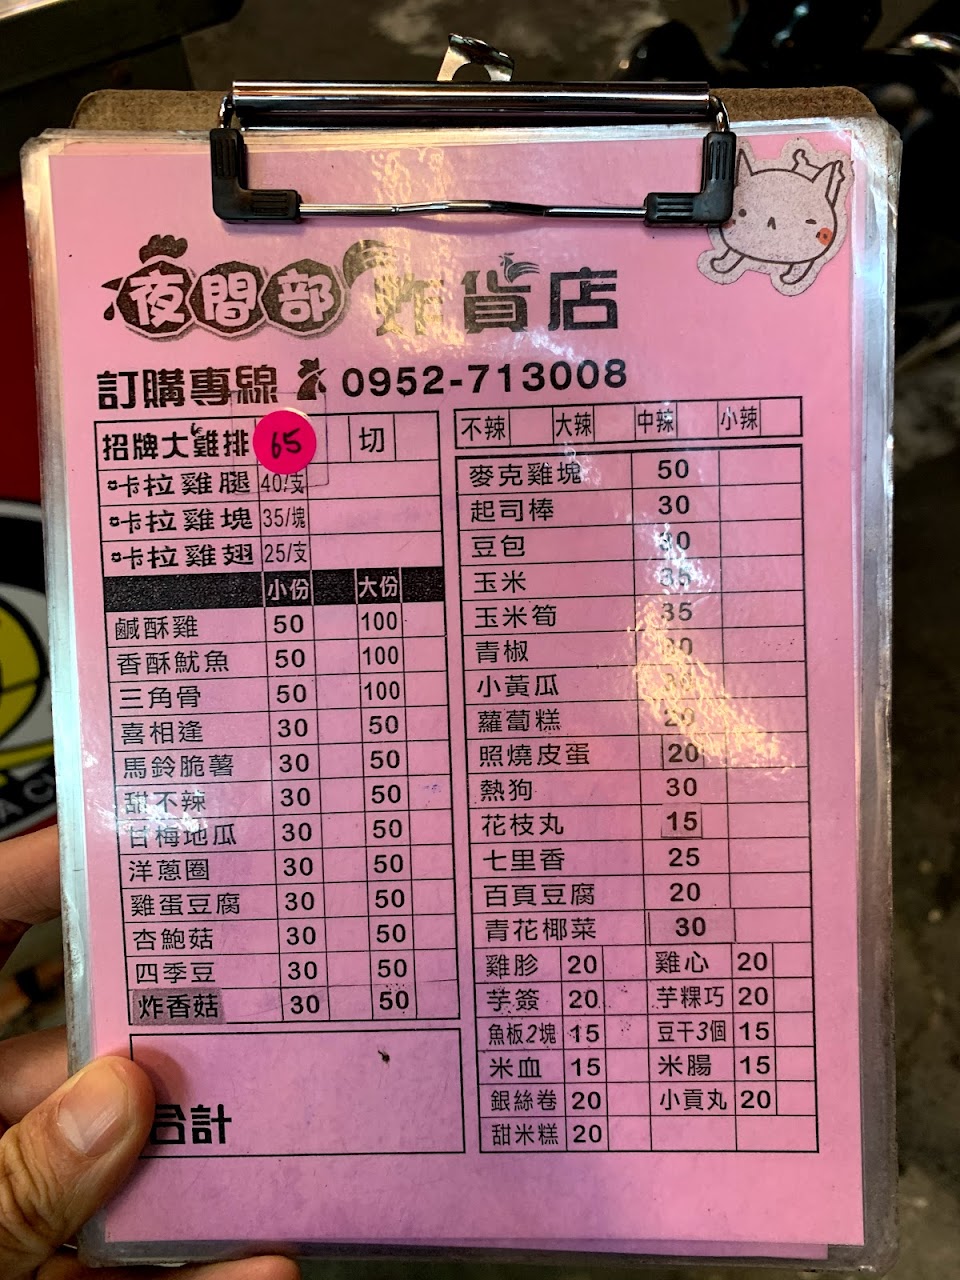 夜間部炸貨店
訂購專線 0952-713008
招牌大雞排 65 切
卡拉雞腿 40/支
卡拉雞塊 35/塊
卡拉雞翅 25/支
小份 大份
鹹酥雞 50 100
香酥魷魚 50 100
三角骨 50 100
喜相逢 30 50
馬鈴脆薯 30 50
甜不辣 30 50
甘梅地瓜 30 50
洋蔥圈 30 50
雞蛋豆腐 30 50
杏鮑菇 30 50
四季豆 30 50
炸香菇 30 50
合計
不辣 大辣 中辣 小辣
麥克雞塊 50
起司棒 30
豆包 30
玉米 35
玉米筍 35
青椒
小黃瓜
蘿蔔糕 20
照燒皮蛋 20
熱狗 30
花枝丸 15
七里香 25
百頁豆腐 20
青花椰菜 30
雞胗 20 雞心 20
芋簽 20 芋粿巧 20
魚板2塊 15 豆干3個 15
米血 15 米腸 15
銀絲卷 20 小貢丸 20
甜米糕 20